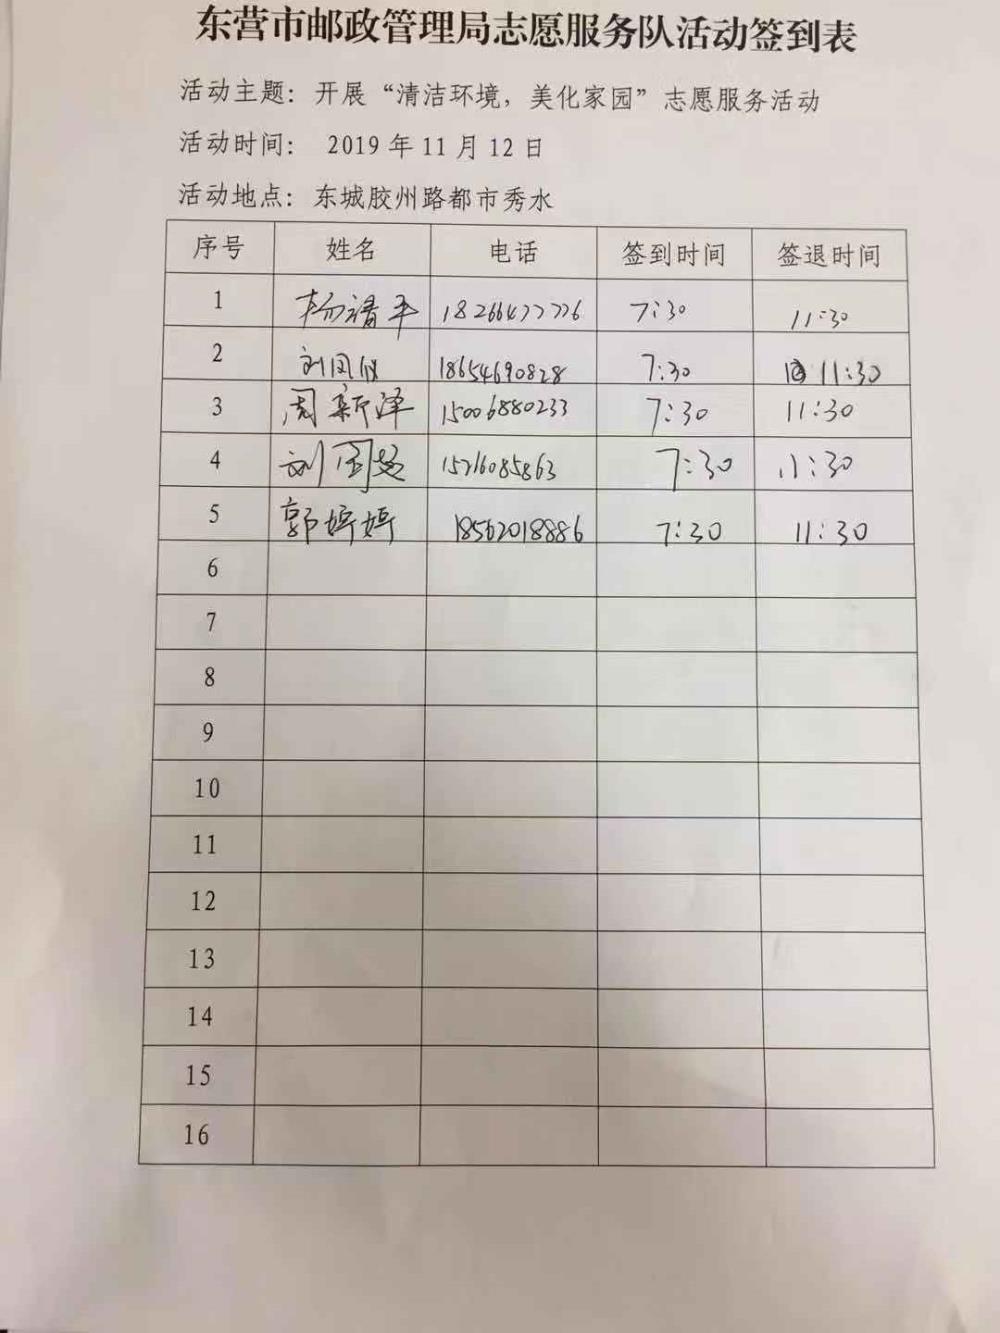 东营市邮政管理局志愿服务队活动签到表
活动主题：开展“清洁环境，美化家园”志愿服务活动
活动时间： 2019 年 11 月 12 日
活动地点：东城胶州路都市秀水
序号 姓名 电话 签到时间 签退时间
1 杨清平 18266477776 7:30 11:30
2 刘凤仪 18654690828 7:30 11:30
3 周新泽 15006880233 7:30 11:30
4 刘国 15216085863 7:30 11:30
5 郭婷婷 18562018886 7:30 11:30
6
7
8
9
10
11
12
13
14
15
16